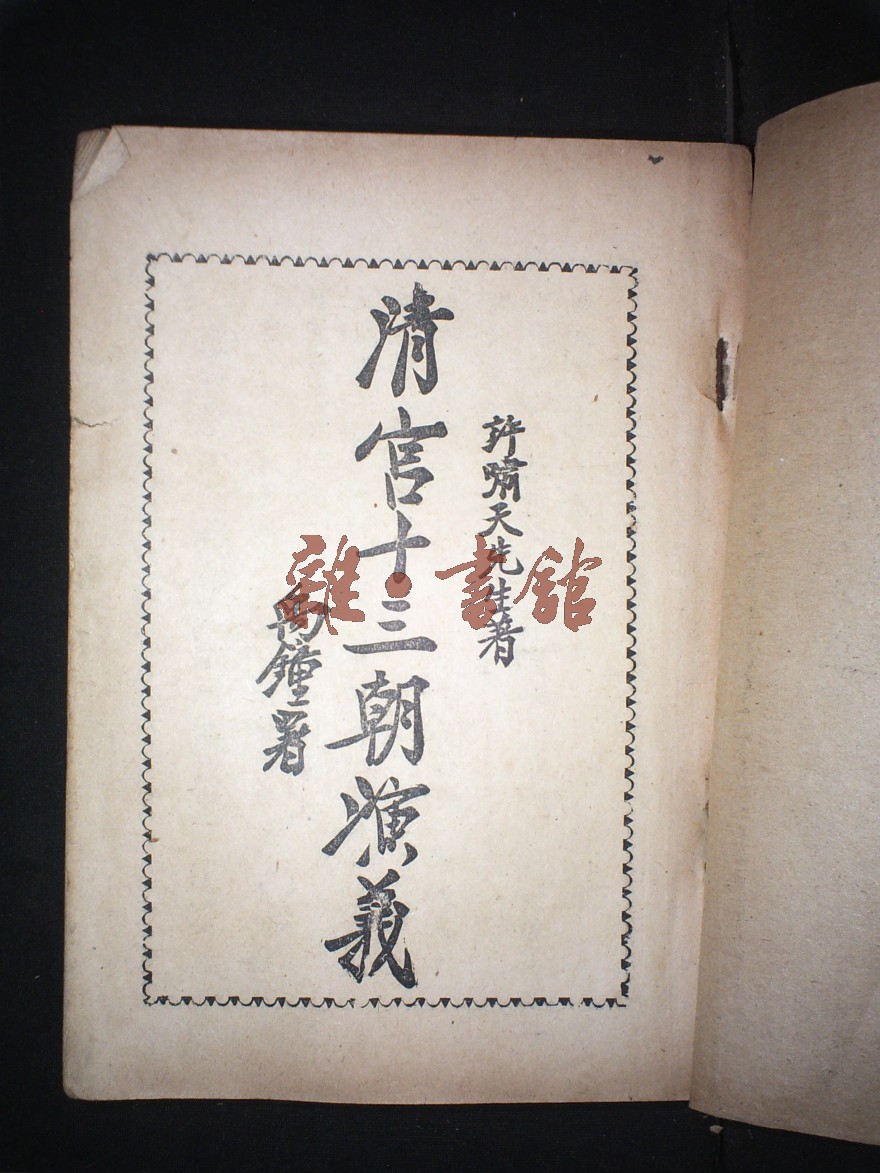 許嘯天先生著
清宮十三朝演義
禹鐘署
雜·書館